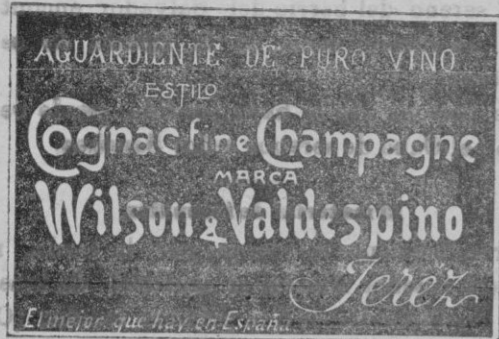 AGUARDIENTE DE PURO VINO
ESTILO
Cognac fine Champagne
MARCA
Wilson & Valdespino
Jerez
El mejor que hay en España